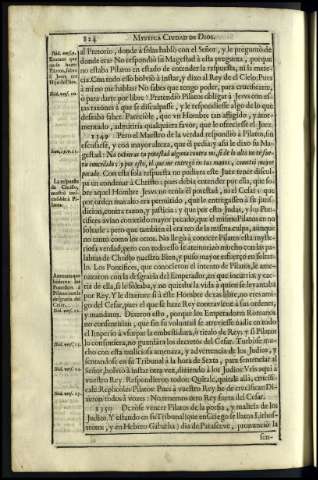 824 MYSTICA CIUDAD DE DIOS.
al Pretorio, donde à solas hablò con el Señor, y le preguntò de
donde era? No respondiò su Magestad à esta pregunta, porque
no estaba Pilatos en estado de entender la respuesta, ni la mere-
cia. Con todo esso bolviò à instar, y dixo al Rey del Cielo: Pues
à mi no me hablas? No sabes que tengo poder, para crucificarte,
ò para darte por libre? Pretendiò Pilatos obligar à Jesus con es-
sas razones à que se disculpasse, y le respondiesse algo de lo que
deseaba saber. Pareciòle, que un Hombre tan afligido, y ator-
mentado, admitiria qualquier favor, que le ofreciesse el Juez.
1349 Pero el Maestro de la verdad respondiò à Pilatos, sin
escusarse, y con mayor altura, que èl pedia; y assi le dixo su Ma-
gestad: No tuvieras tu potestad alguna contra mi, si de lo alto no te fue-
ra concedido; y por esto, el que me entregò en tus manos, cometiò mayor
pecado. Con sola esta respuesta no pudiera este Juez tener discul-
pa en condenar à Christo; pues debia entender por ella, que so-
bre aquel Hombre Jesus no tenia èl potestad, ni el Cesar: que
por orden mas alto era permitido, que le entregassen à su juris-
dicion, contra razon, y justicia; y que por esto Judas, y los Pon-
tifices avian cometido mayor pecado, que el mismo Pilatos en no
soltarle: pero que tambien èl era reo de la misma culpa, aunque
no tanto como los otros. No llegò à conocer Pilatos esta myste-
riosa verdad; pero con todo esso se atemorizò mucho con las pa-
labras de Christo nuestro Bien, y puso mayor esfuerzo en soltar-
lo. Los Pontifices, que conocieron el intento de Pilatos, le ame-
nazaron con la desgracia del Emperador, en que incurriria, y cae-
ria de ella, si le soltaba, y no quitaba la vida à quien se levantaba
por Rey. Y le dixeron: Si à este Hombre dexas libre, no eres ami-
go del Cesar, pues el que se haze Rey contraviene à sus ordenes,
y mandatos. Dixeron esto, porque los Emperadores Romanos
no consentian, que sin su voluntad se atreviesse nadie en todo
el Imperio à usurpar la investidura, ò titulo de Rey; y si Pilatos
lo consintiera, no guardara los decretos del Cesar. Turbòse mu-
cho con esta maliciosa amenaza, y advertencia de los Judios; y
sentandose en su Tribunal à la hora de Sexta, para sentenciar al
Señor, bolviò à instar otra vez, diziendo à los Judios: Veis aqui à
vuestro Rey. Respondieron todos: Quitale, quitale allà, crucifi-
cale. Replicòles Pilatos: Pues à vuestro Rey he de crucificar? Di-
xeron todos à voces: No tenemos otro Rey fuera del Cesar.
1350 Dexòse vencer Pilatos de la porfia, y malicia de los
Judios. Y estando en su Tribunal (que en Griego se llama Lithos-
trotos, y en Hebreo Gabatha) dia de Parasceve, pronunciò la
sen-